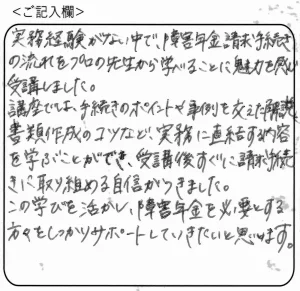 <ご記入欄>
実務経験がない中で、障害年金請求手続き
の流れをプロの先生から学べることに魅力を感じ
受講しました。
講座では、手続きのポイントや事例を交えた解説、
書類作成のコツなど、実務に直結する内容
を学ぶことができ、受講後すぐに請求手続
きに取り組める自信がつきました。
この学びを活かし、障害年金を必要とする
方々をしっかりサポートしていきたいと思います。